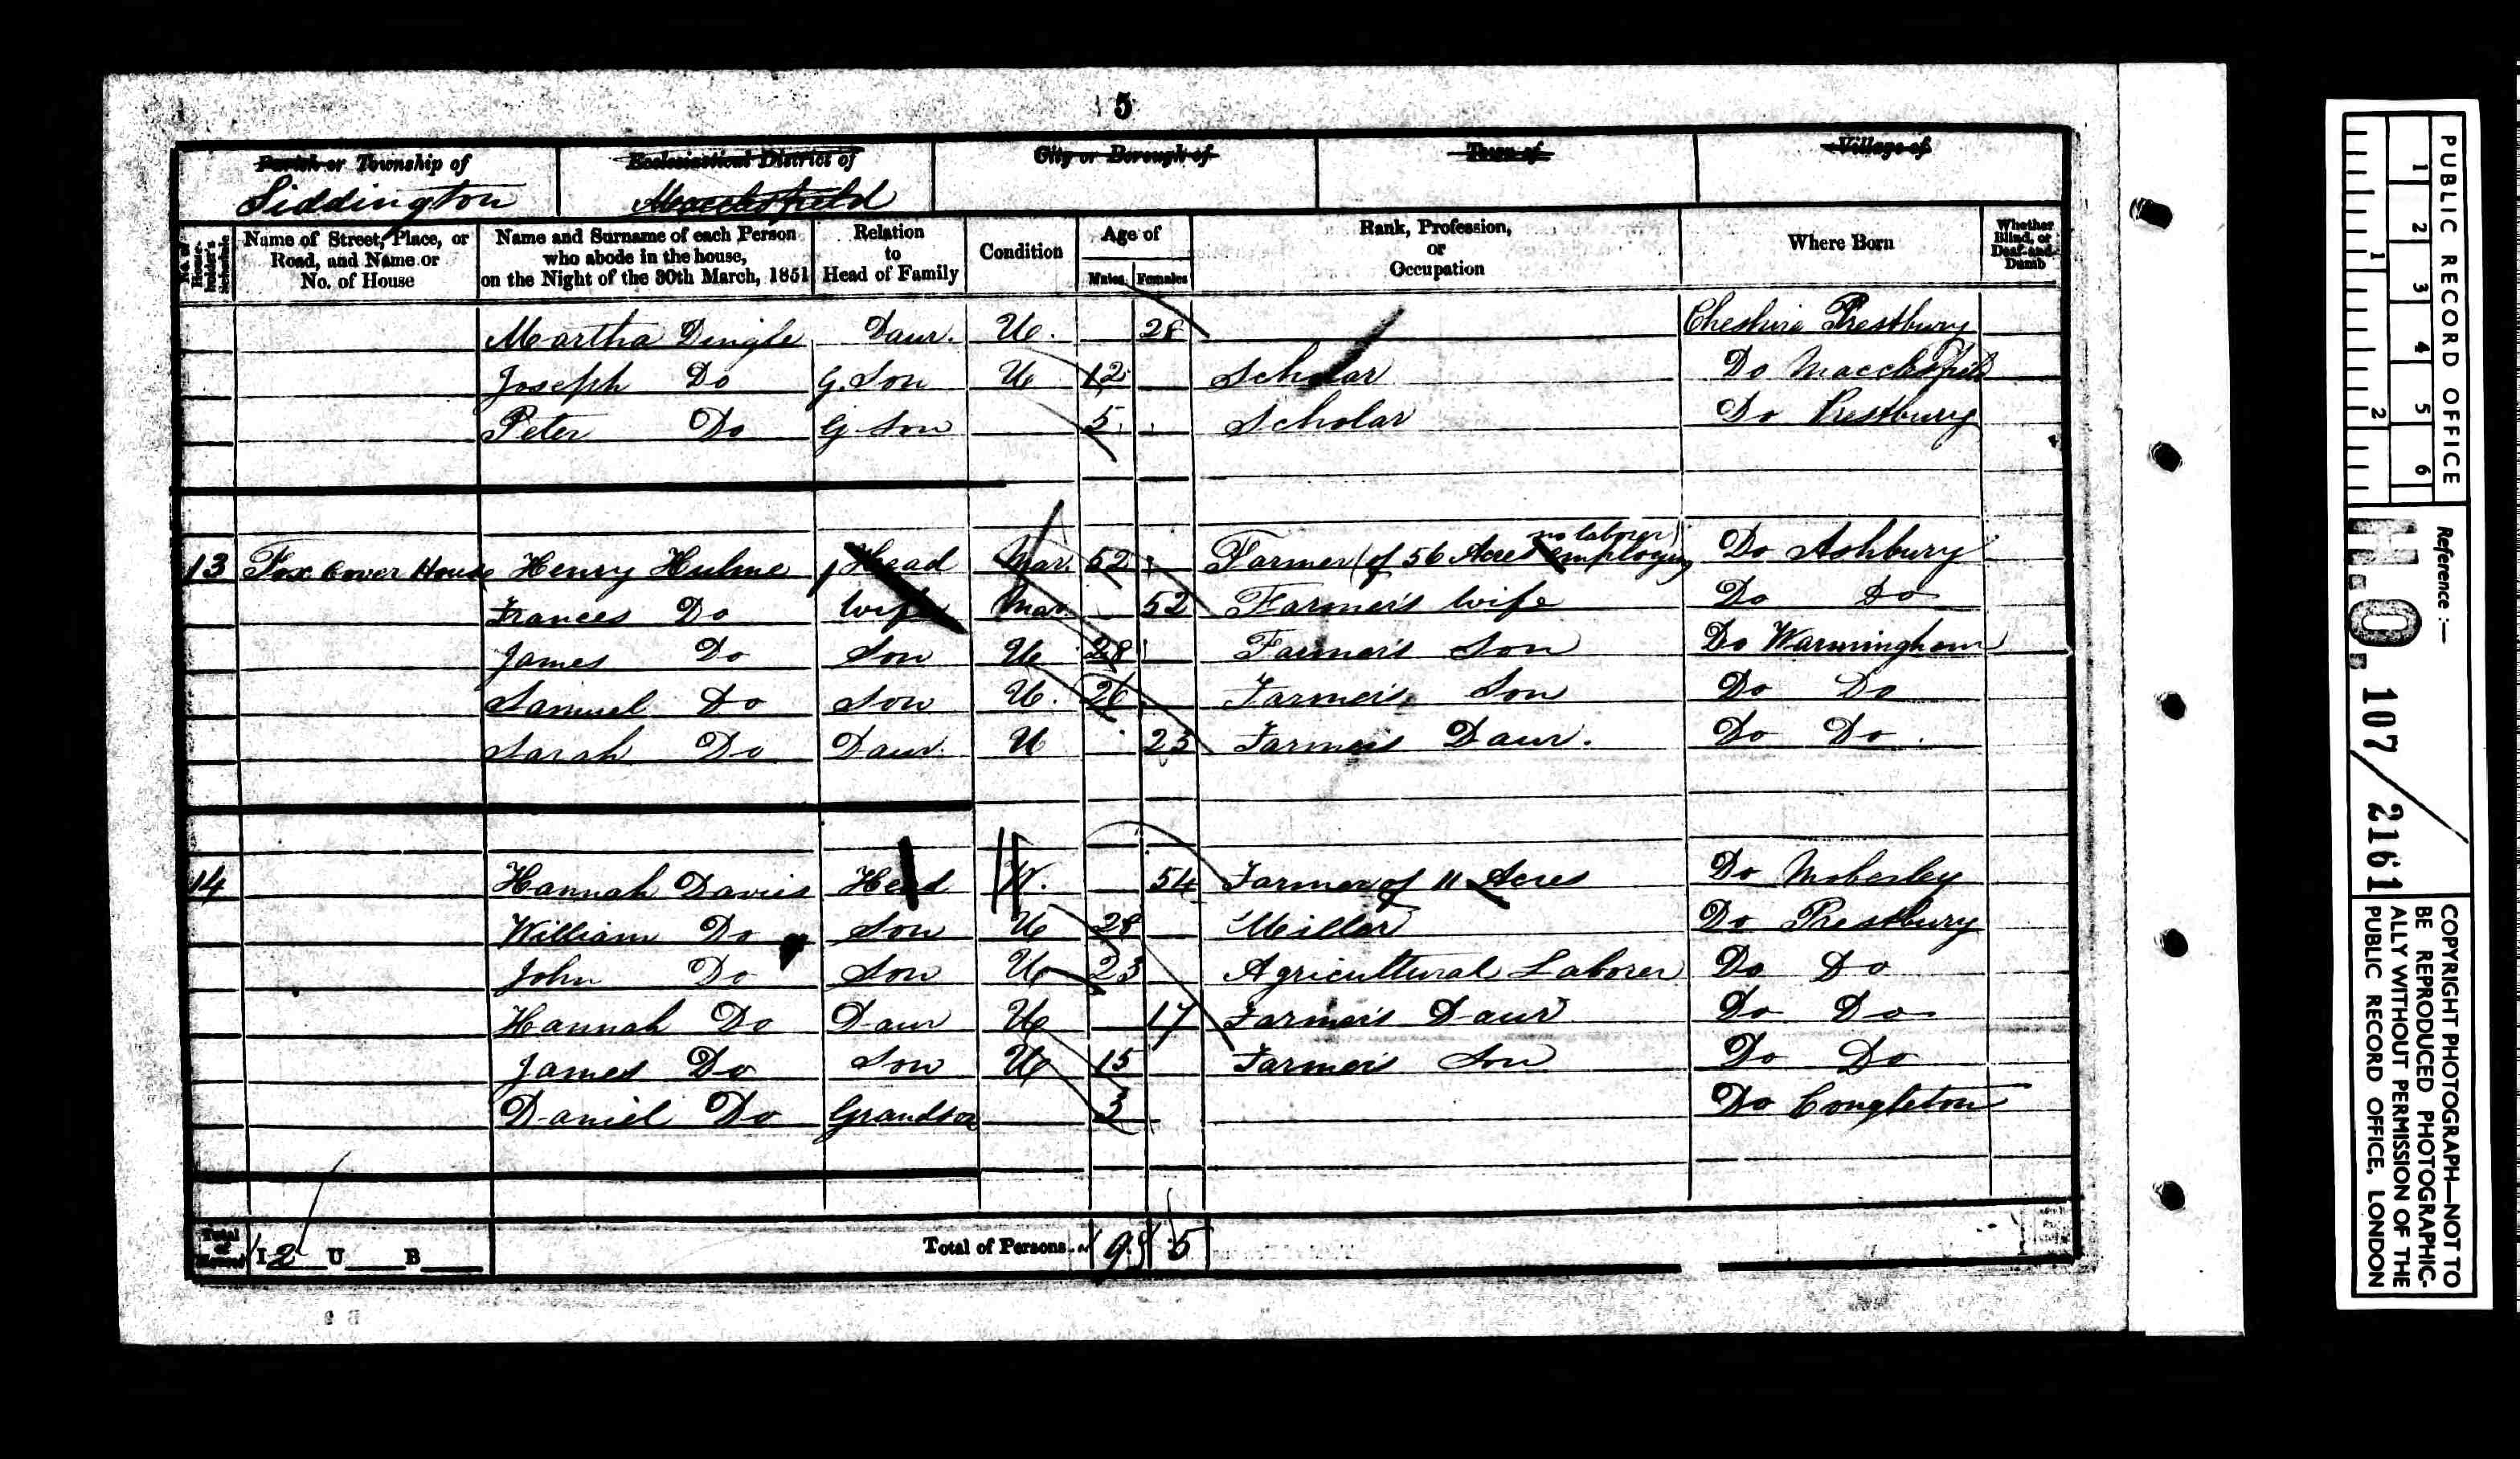 5
Parish or Township of
Siddington
Ecclesiastical District of
Macclesfield
City or Borough of
Town of
Village of
No. of House-holder's Schedule
Name of Street, Place, or Road, and Name or No. of House
Name and Surname of each Person who abode in the house, on the Night of the 30th March, 1851
Relation to Head of Family
Condition
Age of
Males
Females
Rank, Profession, or Occupation
Where Born
Whether Blind, or Deaf-and-Dumb
Martha Dingle Daur. U. 28 Cheshire Prestbury
Joseph Do G. Son U 12 Scholar Do Macclesfield
Peter Do G Son 5 Scholar Do Prestbury
13 Fox Cover House Henry Hulme Head Mar. 52 Farmer (of 56 Acres employing no laborer) Do Ashbury
Frances Do Wife Mar. 52 Farmer's Wife Do Do
James Do Son U 28 Farmer's Son Do Warmingham
Samuel Do Son U. 26 Farmer's Son Do Do
Sarah Do Daur. U 23 Farmer's Daur. Do Do
14 Hannah Davies Head W. 54 Farmer of 11 Acres Do Moberley
William Do Son U 28 Miller Do Prestbury
John Do Son U 23 Agricultural Laborer Do Do
Hannah Do Daur U 17 Farmer's Daur Do Do
James Do Son U 15 Farmer's Son Do Do
Daniel Do Grandson 3 Do Congleton
Total of Houses I 2 U B
Total of Persons 9 5
PUBLIC RECORD OFFICE
1 2 3 4 5 6
1 2
Reference :—
H.O. 107 / 2161
COPYRIGHT PHOTOGRAPH—NOT TO BE REPRODUCED PHOTOGRAPHIC-
ALLY WITHOUT PERMISSION OF THE
PUBLIC RECORD OFFICE, LONDON